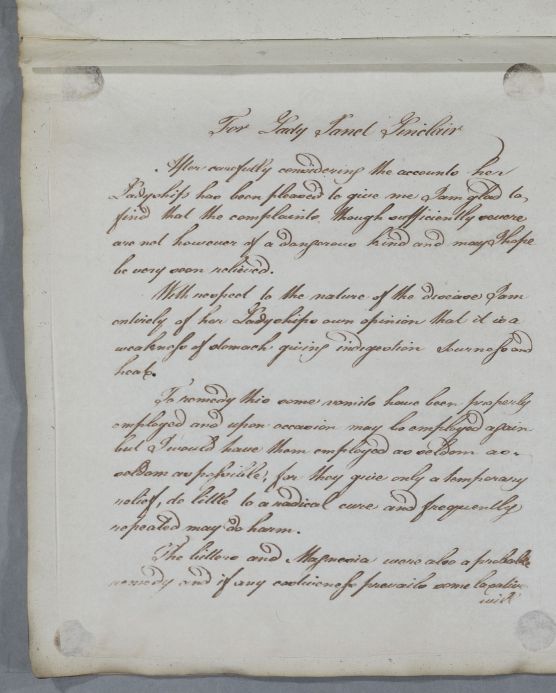 For Lady Janet Sinclair
After carefully considering the accounts her
Ladyship has been pleased to give me I am glad to
find that the complaints though sufficiently severe
are not however of a dangerous kind and may I hope
be very soon relieved.
With respect to the nature of the disease I am
entirely of her Ladyships own opinion that it is a
weakness of stomach giving indigestion Sourness and
heat.
To remedy this some vomits have been properly
employed and upon occasion may be employed again
but I would have them employed as seldom as
seldom as possible, for they give only a temporary
relief, do little to a radical cure and frequently
repeated may do harm.
The bitters and Magnesia were also a probable
remedy and if any costiveness prevails some laxative